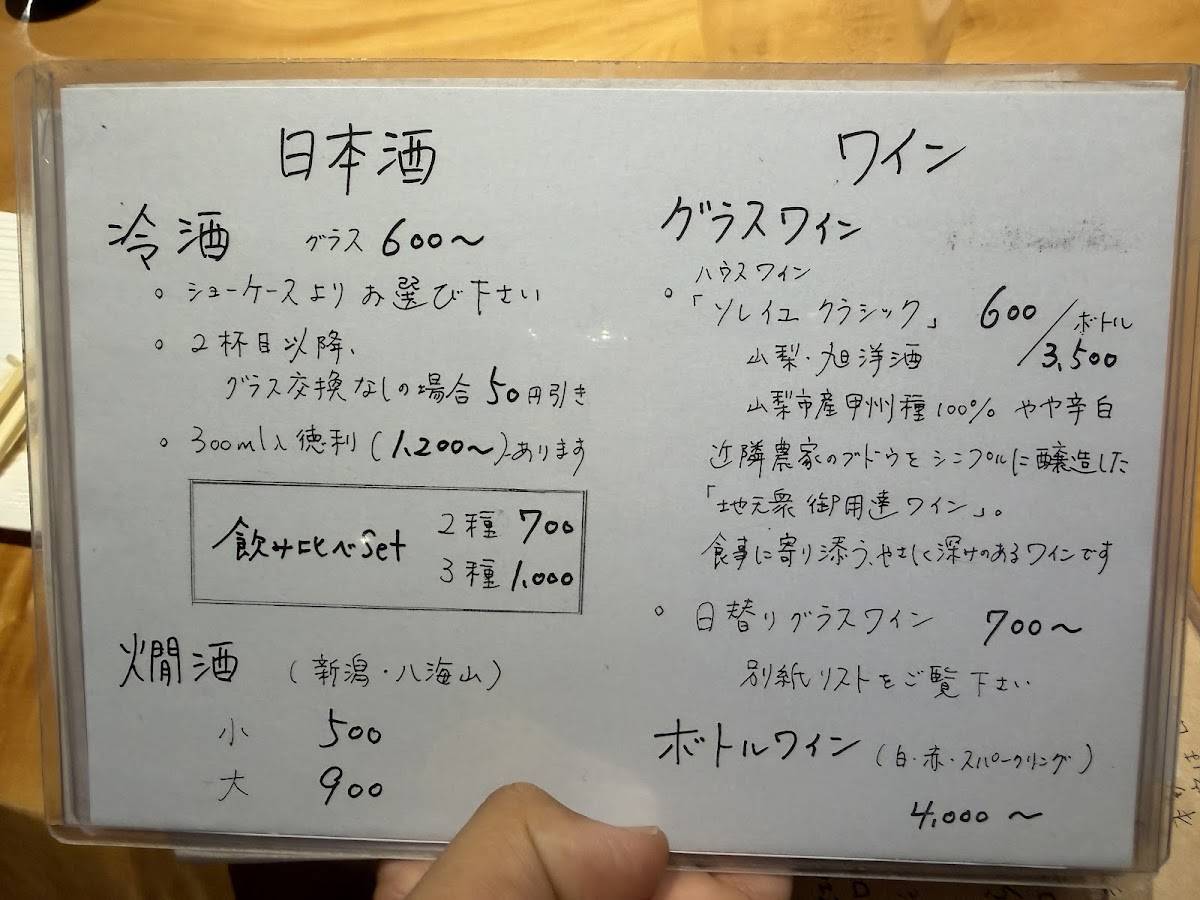 日本酒
冷酒 グラス 600〜
。ショーケースよりお選び下さい
。2杯目以降、
グラス交換なしの場合 50円引き
。300ml入徳利(1,200〜)あります
飲み比べSet 2種 700
3種 1,000
燗酒 (新潟・八海山)
小 500
大 900
ワイン
グラスワイン
ハウスワイン
。「ソレイユ クラシック」 600/ボトル
山梨・旭洋酒 3,500
山梨市産甲州種100% やや辛白
近隣農家のブドウをシンプルに醸造した
「地元衆 御用達ワイン」。
食事に寄り添う、やさしく深みのあるワインです
。日替りグラスワイン 700〜
別紙リストをご覧下さい
ボトルワイン (白・赤・スパークリング)
4,000〜